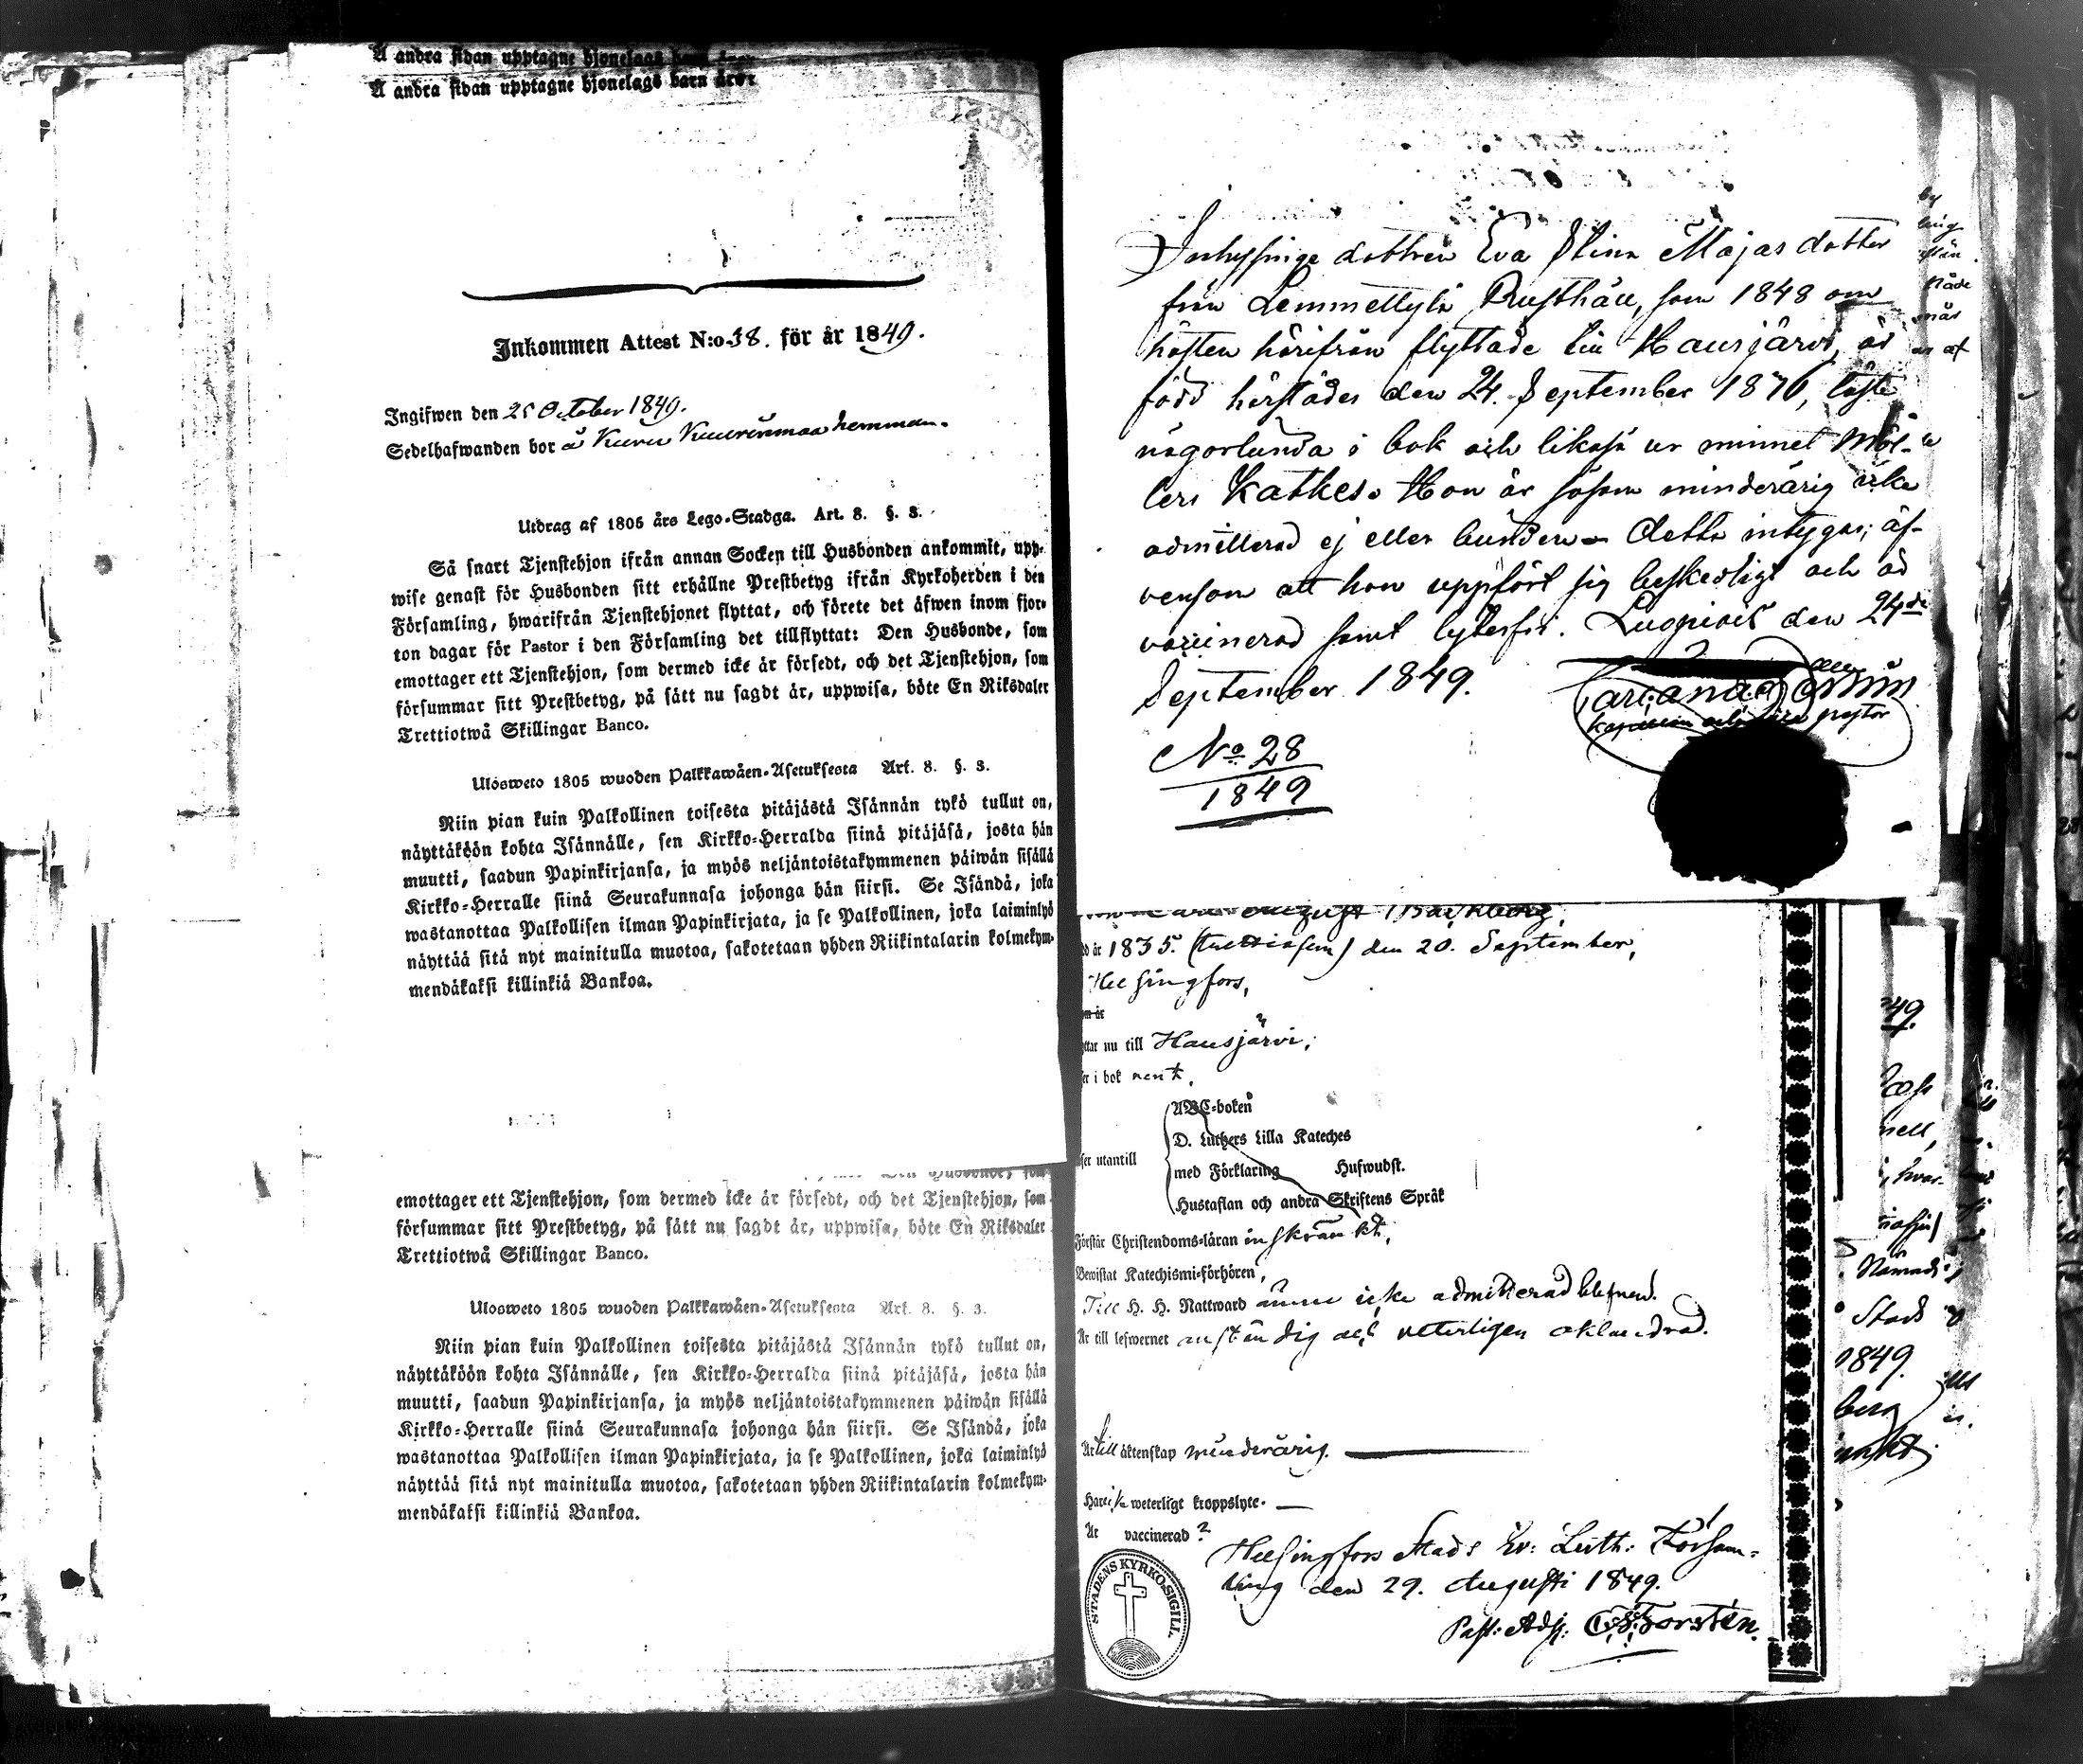 Å andra sidan upptagne hjonelags barn äro:
Å andra sidan upptagne hjonelags barn äro:
Inkommen Attest N:o 38. för år 1849.
Ingifwen den 25 October 1849.
Sedelhafwanden bor å Kuru hemman.
Utdrag af 1805 års Lego-Stadga. Art. 8. §. 3.
Så snart Tjenstehjon ifrån annan Socken till Husbonden ankommit, upp-
wise genast för Husbonden sitt erhållne Prestbetyg ifrån Kyrkoherden i den
Församling, hwarifrån Tjenstehjonet flyttat, och förete det äfwen inom fjor-
ton dagar för Pastor i den Församling det tillflyttat: Den Husbonde, som
emottager ett Tjenstehjon, som dermed icke är försedt, och det Tjenstehjon, som
försummar sitt Prestbetyg, på sätt nu sagdt är, uppwisa, böte En Riksdaler
Trettiotwå Skillingar Banco.
Ulosweto 1805 wuoden Palkkawäen-Asetuksesta Art. 8. §. 3.
Niin pian kuin Palkollinen toisesta pitäjästä Isännän tykö tullut on,
näyttäköön kohta Isännälle, sen Kirkko-Herralda siinä pitäjäsä, josta hän
muutti, saadun Papinkirjansa, ja myös neljäntoistakymmenen päiwän sisällä
Kirkko-Herralle siinä Seurakunnasa johonga hän siirsi. Se Isändä, joka
wastanottaa Palkollisen ilman Papinkirjata, ja se Palkollinen, joka laiminlyö
näyttää sitä nyt mainitulla muotoa, sakotetaan yhden Riikintalarin kolmekym-
mendäkaksi killinkiä Bankoa.
Den Husbonde, som
emottager ett Tjenstehjon, som dermed icke är försedt, och det Tjenstehjon, som
försummar sitt Prestbetyg, på sätt nu sagdt är, uppwisa, böte En Riksdaler
Trettiotwå Skillingar Banco.
Ulosweto 1805 wuoden Palkkawäen-Asetuksesta Art. 8. §. 3.
Niin pian kuin Palkollinen toisesta pitäjästä Isännän tykö tullut on,
näyttäköön kohta Isännälle, sen Kirkko-Herralda siinä pitäjäsä, josta hän
muutti, saadun Papinkirjansa, ja myös neljäntoistakymmenen päiwän sisällä
Kirkko-Herralle siinä Seurakunnasa johonga hän siirsi. Se Isändä, joka
wastanottaa Palkollisen ilman Papinkirjata, ja se Palkollinen, joka laiminlyö
näyttää sitä nyt mainitulla muotoa, sakotetaan yhden Riikintalarin kolmekym-
mendäkaksi killinkiä Bankoa.
Inhysinge dottren Eva Stina Majas dotter
från Lemmettylä Rusthåll, som 1848 om
hösten härifrån flyttade till Hausjärvi, är
född härstädes den 24. September, läser
någorlunda i bok och likaså ur minnet Möl-
lers Kathes. Hon är såsom minderårig icke
admitterad ej eller bunden. Detta intygas; äf-
vensom att hon uppfört sig beskedligt och är
vaccinerad samt lytesfri. Loppis den 24de
September 1849.
No 28
1849
August
år 1835. (trettiofem) den 20. September,
Helsingfors,
nu till Hausjärvi,
i bok rent,
ABC-boken
D. Luthers Lilla Kateches
utantill
med Förklaring Hufwudst.
Hustaflan och andra Skriftens Språk
Förstår Christendoms-läran inskränkt,
Bewistat Katechismi-förhören,
Till H. H. Nattward ännu icke admitterad blefwen.
Är till lefwernet anständig och veterligen oklandrad.
Är till äktenskap minderårig.
Har icke weterligt kroppslyte.
Är vaccinerad?
Helsingfors Stads Ev: Luth: Försam-
ling den 29. Augusti 1849.
Past: Adj:
STADENS KYRKO-SIGILL.
49.
Stads
1849.
berg